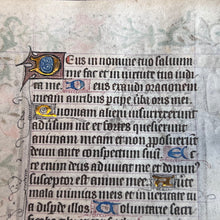 Deus in nomine tuo saluum
me fac et in uirtute tua iudi
ca me. Deus exaudi orationem
meam auribus percipe uerba oris mei.
Quoniam alieni insurrexerunt
aduersum me et fortes quesierunt
animam meam et non proposuerunt
deum ante conspectum suum. Ecce
enim deus adiuuat me et dominus
susceptor est anime mee. Auerte
mala inimicis meis et in ueritate tu
a disperde illos. Voluntarie sacri